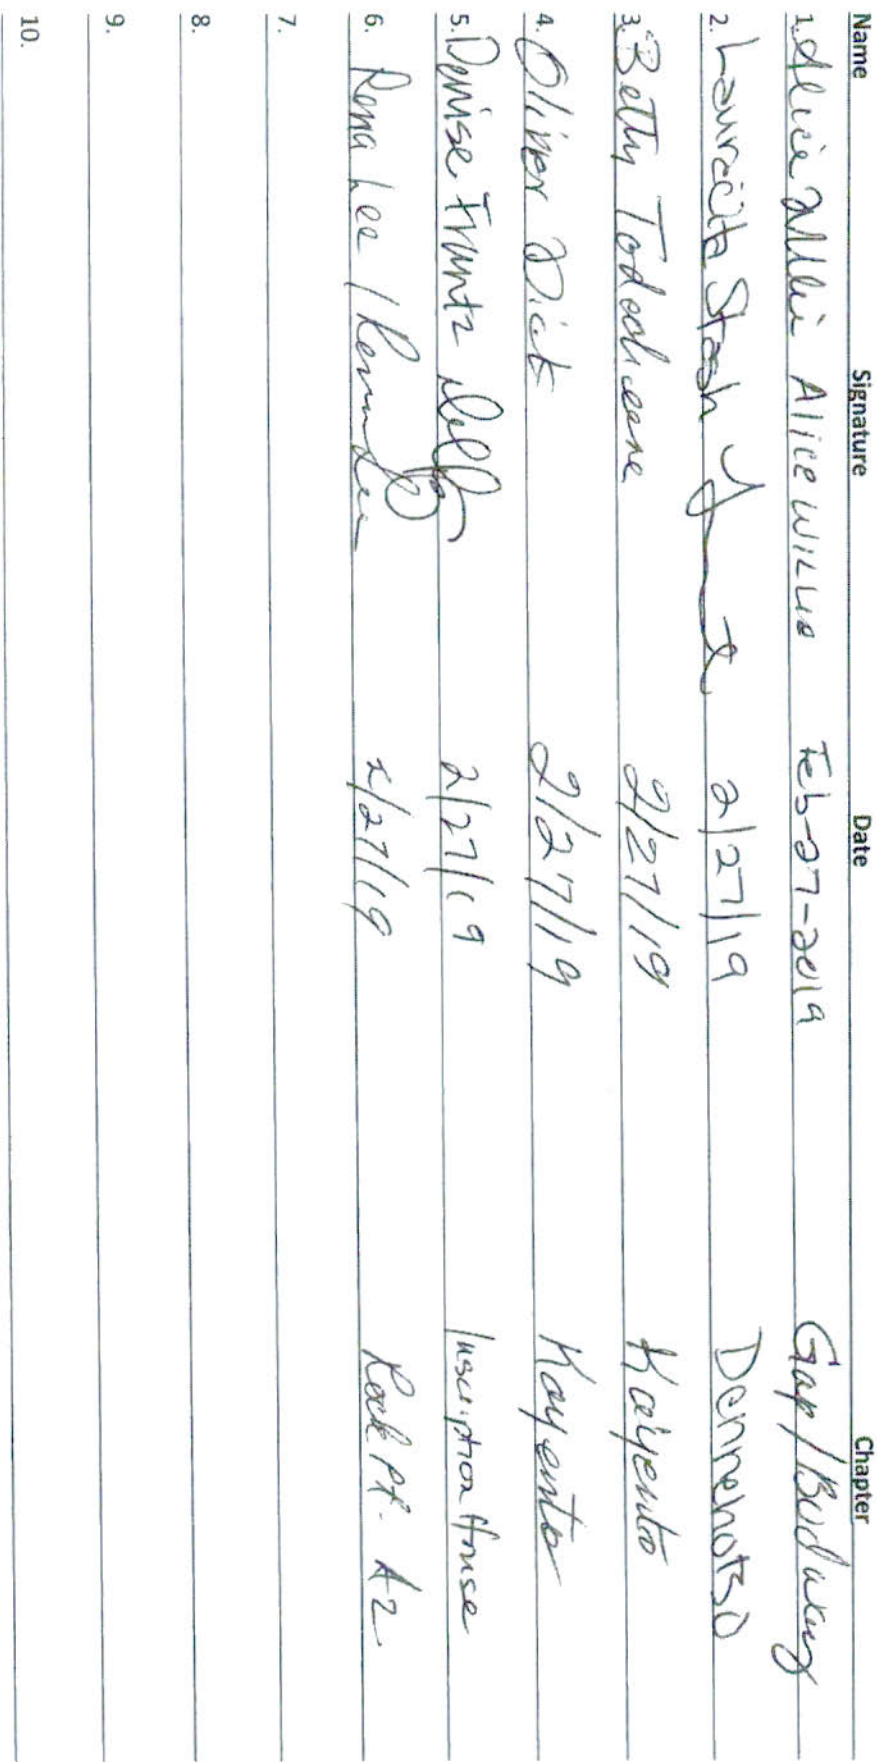 Name Signature Date Chapter
1. Alice Willie Alice Willie Feb-27-2019 Gap/Bodaway
2. Lauracita Stash 2/27/19 Dennehotso
3. Betty Todacheene 2/27/19 Kayenta
4. Oliver Dick 2/27/19 Kayenta
5. Denise Frantz 2/27/19 Inscription House
6. Rena Lee / Rena Lee 2/27/19 Rock Pt. AZ
7.
8.
9.
10.